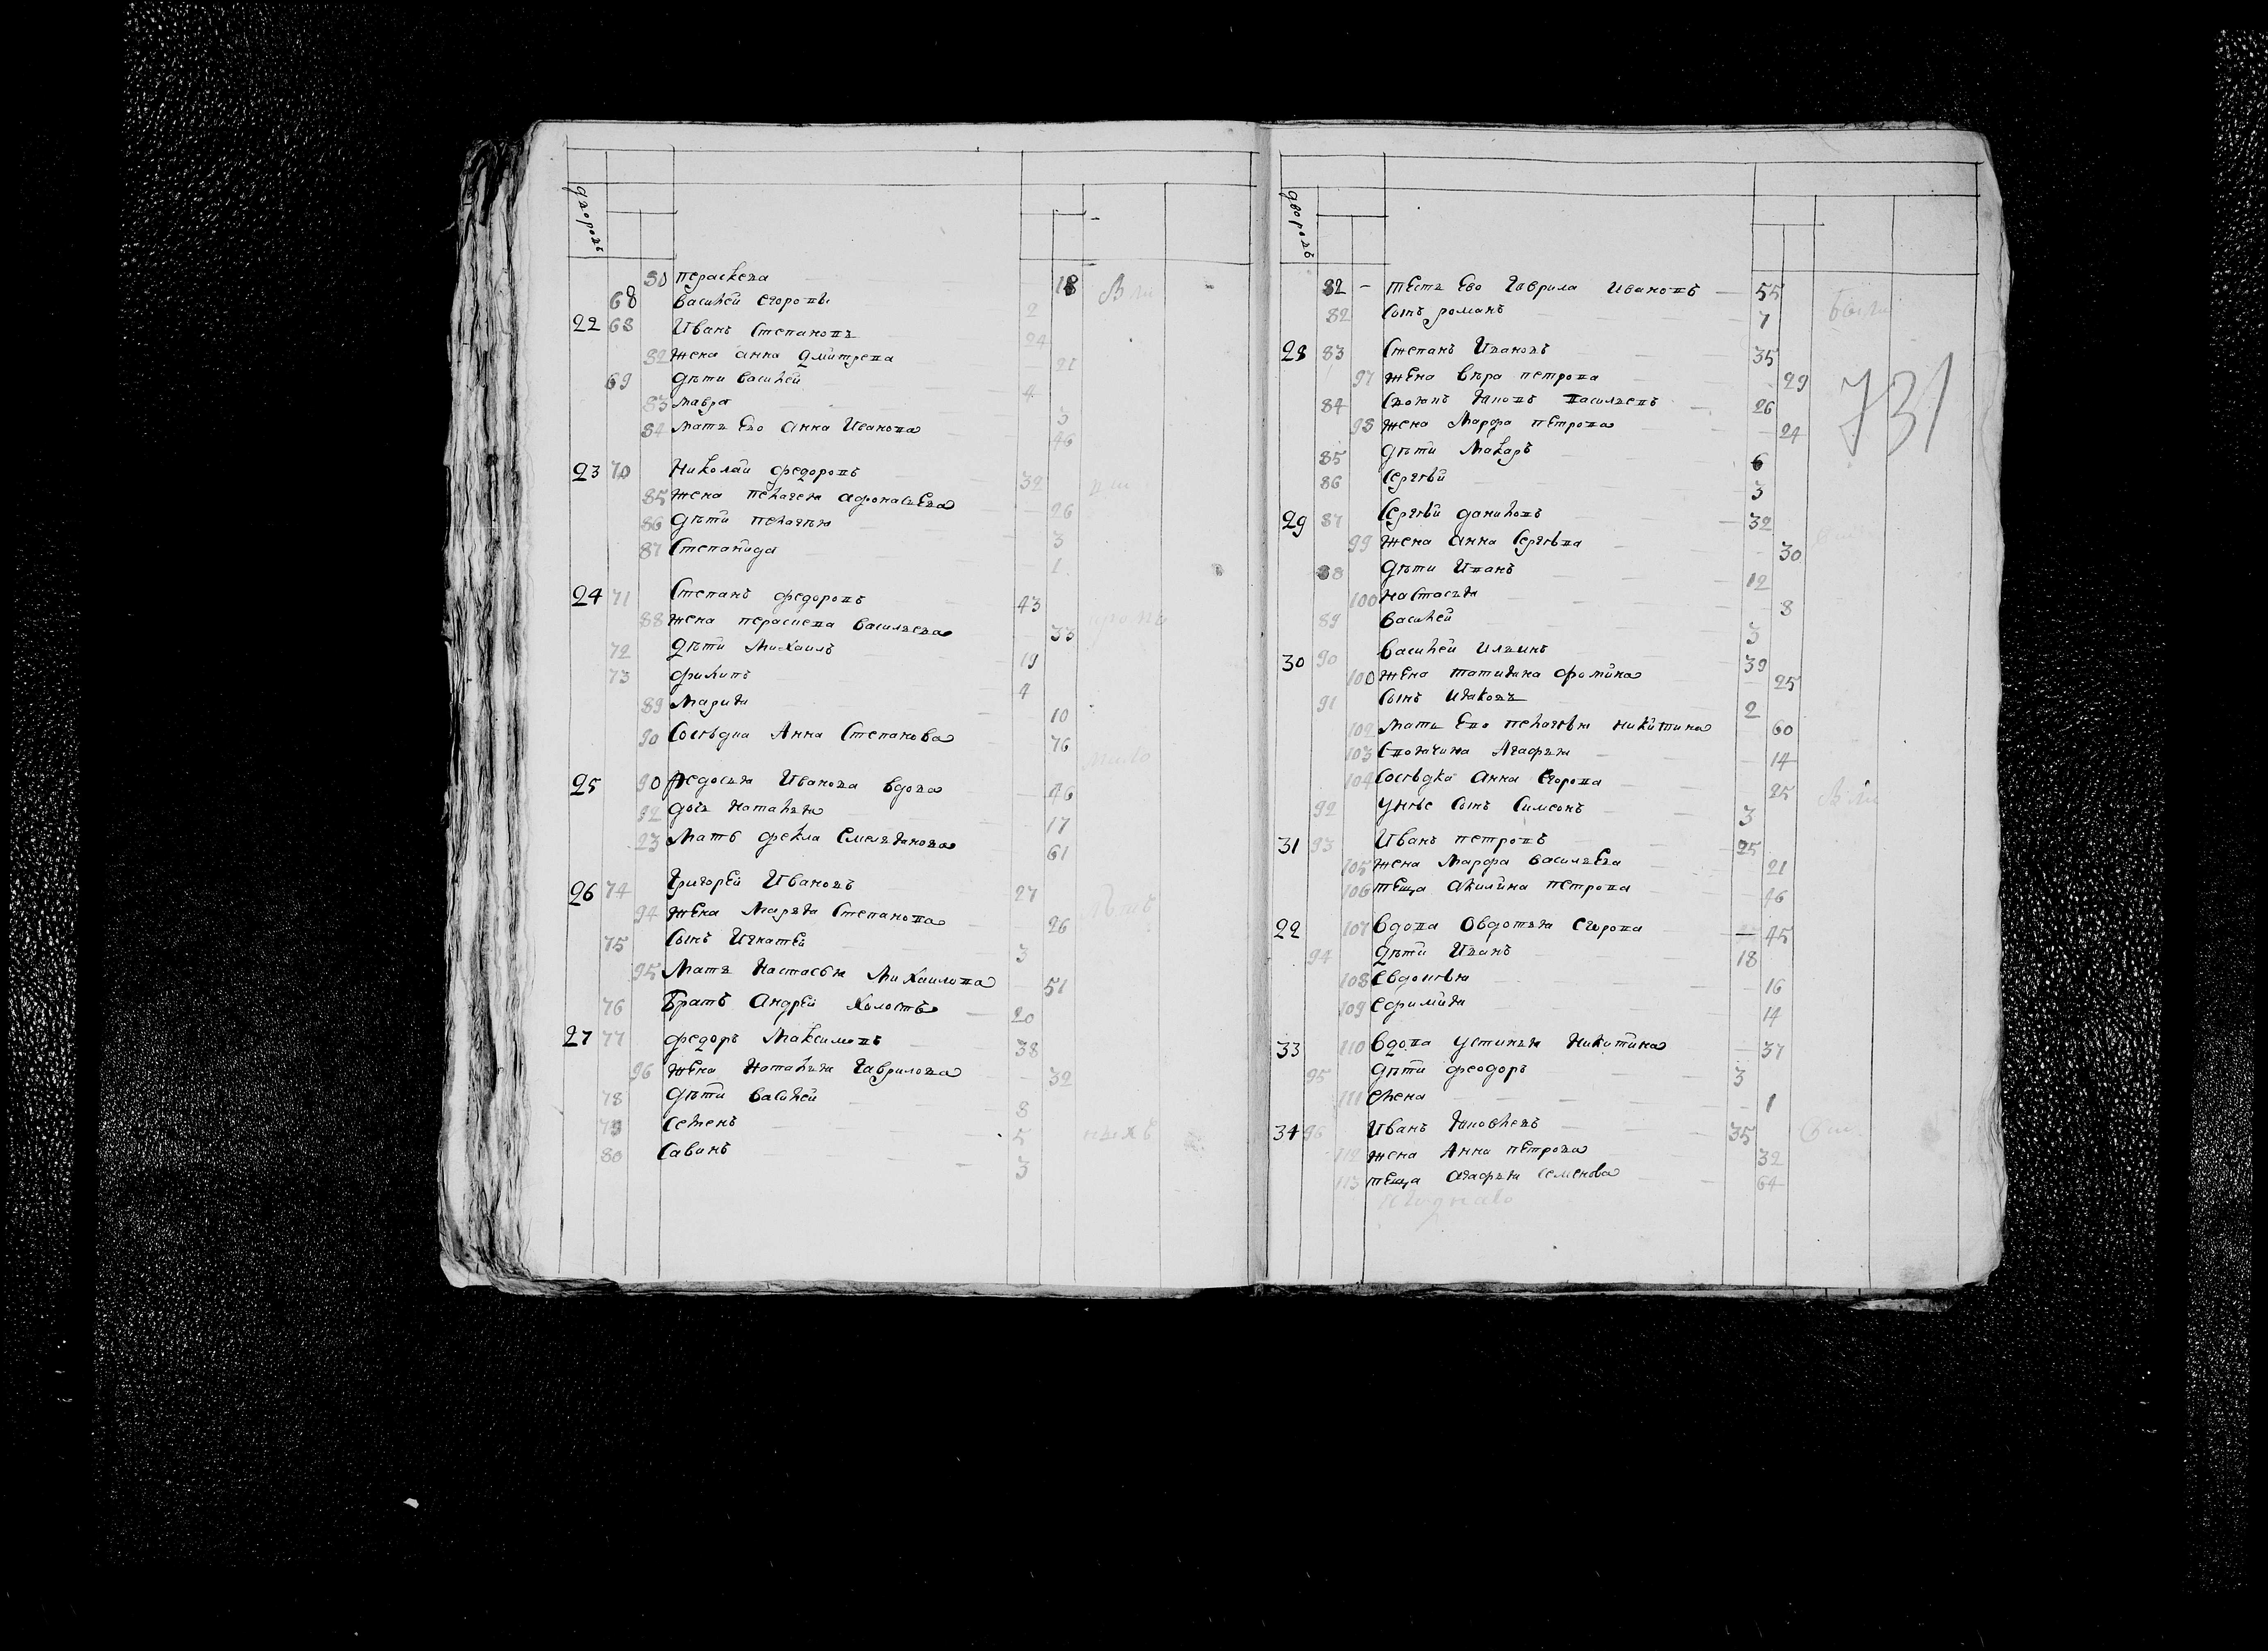 дворовъ
30 пераскева 18
68 василей егоровъ 2
22 68 Иванъ Степановъ 24
82 жена анна дмитрева 21
69 дѣти василей 4
83 мавра 3
84 мать Ево Анна Иванова 46
23 70 Николай федоровъ 32
85 жена пелагея афонасьева 26
86 дѣти пелагѣя 3
87 Степанида 1
24 71 Степанъ федоровъ 43
88 жена пераскева васильева 33
72 дѣти Михаилъ 19
73 филипъ 4
89 Марья 10
90 Сосѣдка Анна Степанова 76
25 90 Федосья Иванова вдова 46
92 дочь Наталья 17
23 Мать фекла Емельянова 61
26 74 Григорей Ивановъ 27
94 жена Марья Степанова 26
75 Сынъ Игнатей 3
95 Мать Настасья Михаилова 51
76 Братъ Андрей холостъ 20
27 77 федоръ Максимовъ 38
96 жена Наталья Гаврилова 32
78 дѣти василей 8
79 Семенъ 5
80 Савинъ 3
дворовъ
82 - тесть Ево Гаврила Ивановъ 55
82 Сынъ романъ 7
731
28 83 Степанъ Ивановъ 35
97 жена вѣра петрова 29
84 Своякъ яковъ васильевъ 26
98 жена Марфа петрова 24
85 дѣти Макаръ 6
86 Сергѣй 3
29 87 Сергѣй даниловъ 32
99 жена Анна Сергѣева 30
88 дѣти Иванъ 12
100 Настасья 8
89 василей 3
30 90 василей Ильинъ 39
100 жена татияна фомина 25
91 Сынъ Ияковъ 2
102 Мать Ево пелагѣя никитина 60
103 Своячина Агафья 14
104 Сосѣдка Анна Егорова 25
92 У нѣе Сынъ Симеонъ 3
31 93 Иванъ петровъ 25
105 жена Марфа васильева 21
106 теща акилина петрова 46
22 107 вдова Овдотья Егорова 45
94 дѣти Иванъ 18
108 Евдокѣя 16
109 Ефимия 14
33 110 вдова устинья Никитина 37
95 дѣти феодоръ 3
111 Елена 1
34 96 Иванъ яковлевъ 35
112 жена Анна петрова 32
113 теща Агафья Семенова 64